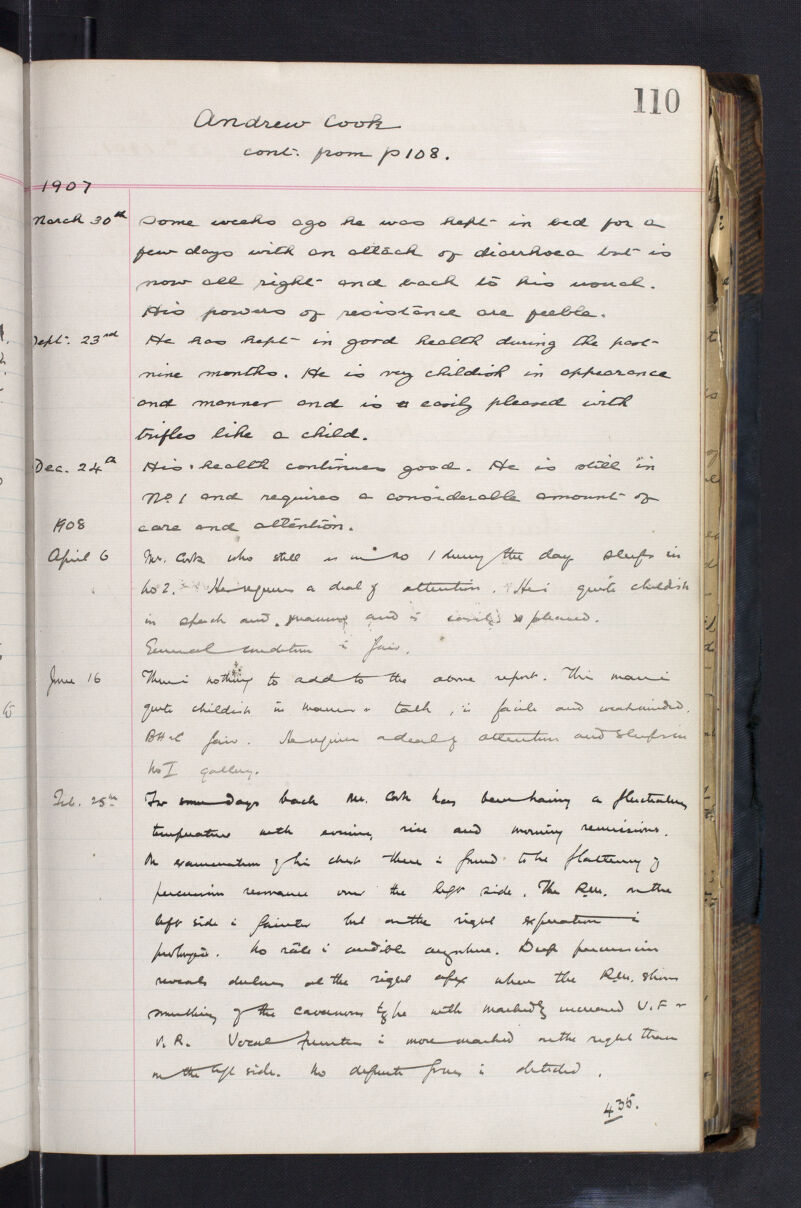 110
Andrew Cook
cont. from p 108.
1907
March 30th Some weeks ago he was kept in bed for a
few days with an attack of diarrhoea but is
now all right and back to his usual.
His powers of resistance are feeble.
Sept. 23rd He has kept in good health during the past
nine months. He is very childish in appearance
and manner and is easily pleased with
trifles like a child.
Dec. 24th His health continues good. He is still in
No. 1 and requires a considerable amount of
1908 care and attention.
April 6 Mr. Cook who still is in No 1 during the day sleeps in
No 2. He requires a deal of attention. He is quite childish
in speech and manner and is easily pleased.
General condition is fair.
June 16 There is nothing to add to the above report. This man is
quite childish in manner & talk, is facile and weakminded.
BH is fair. He requires a deal of attention and sleeps in
No I gallery.
Feb. 25th For some days back Mr. Cook has been having a fluctuating
temperature with evening rise and morning remissions.
On examination of his chest there is found to be flattening of
percussion resonance over the left side. The R.M. on the
left side is fainter but on the right expiration is
prolonged. No râle is audible anywhere. Deep percussion
reveals dulness at the right apex where the R.M. shows
something of the cavernous type with markedly increased V.F &
V.R. Vocal fremitus is more marked on the right than
on the left side. No definite focus is detected.
435.